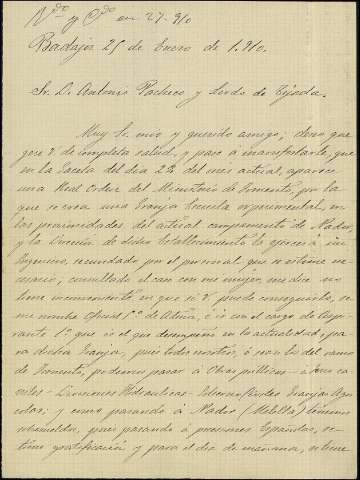 en 27-910
Badajoz 25 de Enero de 1.910.
Sr. D. Antonio Pacheco y Lerdo de Tejada.
Muy Sr. mio y querido amigo; deseo que
goce V. de completa salud, y paso á manifestarle, que
en la Gaceta del dia 22 del mes actual, aparece
una Real Orden del Ministerio de Fomento, por la
que se crea una Granja Escuela experimental, en
las proximidades del actual campamento de Nador,
y la Dirección de dicho Establecimiento la ejercerá un
Ingeniero, secundado por el personal que se estime ne
cesario, consultado el caso con mi mujer, me dice no
tiene inconveniente en que si V. puede conseguirlo, se
me nombre Oficial 5º de Admón, ó si en el cargo de Aspi-
rante 1º que es el que desempeño en la actualidad, pa
ra dicha Granja, pues todos nosotros, ó sean los del ramo
de Fomento, podemos pasar á Obras públicas
Divisiones Hidraulicas Granjas Agri
colas; y como pasando á Nador (Melilla) tenemos
pues pasando á posesiones Españolas, se
tiene gratificación y para el dia de mañana, se tiene